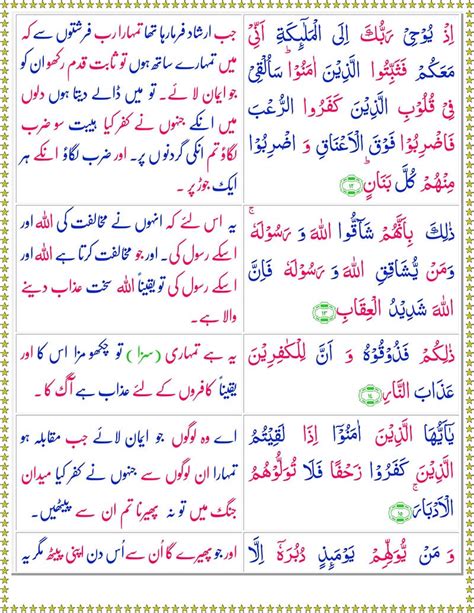 اِذْ يُوْحِىْ رَبُّكَ اِلَى الْمَلٰٓئِكَةِ اَنِّىْ
مَعَكُمْ فَثَبِّتُوا الَّذِيْنَ اٰمَنُوْا ؕ سَاُلْقِىْ
فِىْ قُلُوْبِ الَّذِيْنَ كَفَرُوا الرُّعْبَ
فَاضْرِبُوْا فَوْقَ الْاَعْنَاقِ وَ اضْرِبُوْا
مِنْهُمْ كُلَّ بَنَانٍ ؕ ﴿۱۲﴾
جب ارشاد فرمارہا تھا تمہارا رب فرشتوں سے کہ
میں تمہارے ساتھ ہوں تو ثابت قدم رکھو ان کو
جو ایمان لائے۔ تو میں ڈالے دیتا ہوں دلوں
میں انکے جنہوں نے کفر کیا ہیبت سو ضرب
لگاؤ تم انکی گردنوں پر۔ اور ضرب لگاؤ انکے ہر
ایک جوڑ پر۔
ذٰلِكَ بِاَنَّهُمْ شَآقُّوا اللّٰهَ وَ رَسُوْلَهٗ ۚ
وَمَنْ يُّشَاقِقِ اللّٰهَ وَ رَسُوْلَهٗ فَاِنَّ
اللّٰهَ شَدِيْدُ الْعِقَابِ ﴿۱۳﴾
یہ اس لئے کہ انہوں نے مخالفت کی اللہ اور
اسکے رسول کی۔ اور جو مخالفت کرتا ہے اللہ اور
اسکے رسول کی تو یقیناً اللہ سخت عذاب دینے
والا ہے۔
ذٰلِكُمْ فَذُوْقُوْهُ وَ اَنَّ لِلْكٰفِرِيْنَ
عَذَابَ النَّارِ ﴿۱۴﴾
یہ ہے تمہاری (سزا) تو چکھو مزا اس کا اور
یقیناً کافروں کے لئے عذاب ہے آگ کا۔
يٰٓاَيُّهَا الَّذِيْنَ اٰمَنُوْۤا اِذَا لَقِيْتُمُ
الَّذِيْنَ كَفَرُوْا زَحْفًا فَلَا تُوَلُّوْهُمُ
الْاَدْبَارَ ۚ ﴿۱۵﴾
اے وہ لوگوں جو ایمان لائے جب مقابلہ ہو
تمہارا ان لوگوں سے جنہوں نے کفر کیا میدان
جنگ میں تو نہ پھیرنا تم ان سے پیٹھیں۔
وَ مَنْ يُّوَلِّهِمْ يَوْمَئِذٍ دُبُرَهٗۤ اِلَّا
اور جو پھیرے گا اُن سے اُس دن اپنی پیٹھ مگر یہ